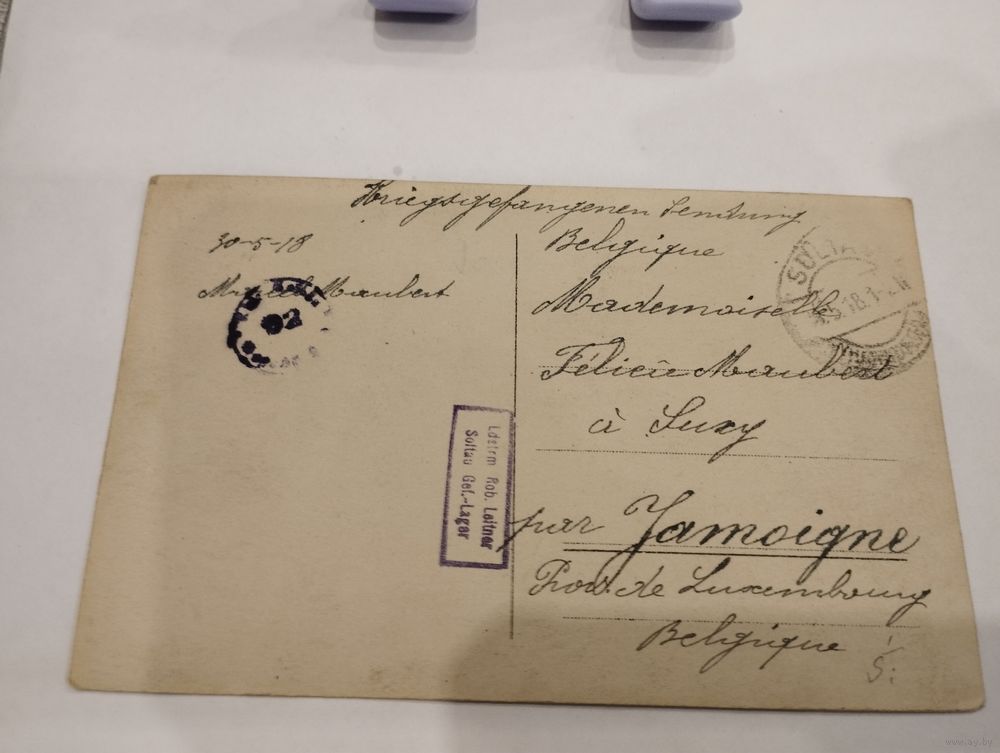 Kriegsgefangenen Sendung
30-5-18
Marcel Maubert
92
Belgique
Mademoiselle
Félicie Maubert
à Suxy
par Jamoigne
Prov. de Luxembourg
Belgique
SOLTAU
.5.18.1-
Ldstrm Rob. Leitner
Soltau Gef.-Lager
www.ay.by